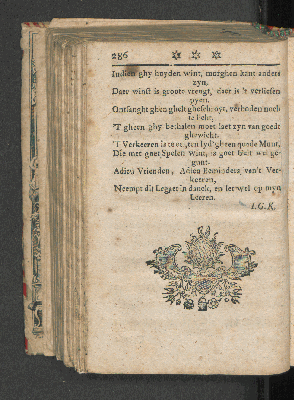 286 * * *
Indien ghy huyden wint, morghen kant anders
zyn.
Daer winst is groote vreugt, daer is 't verliesen
pyen.
Ontfanght gheen ghelt gheschroyt, verboden noch
te licht,
'T gheen ghy betaelen moet laet zyn van goedt
ghewicht.
'T Verkeeren is te en lyd' gheen quade Munt,
Die met goet Spelen wint, is goet Gelt wel ge-
gunt.
Adieu Vrienden, Adieu Beminders van't Ver-
keeren,
Neempt dit Legaet in danck, en let wel op myn
Leeren.
I.G.K.